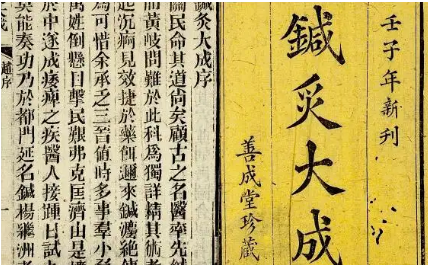 壬子年新刊
鍼灸大成
善成堂珍藏
鍼灸大成序
關民命其道尚矣顧古之名醫率先鍼
而黃岐問難於此科爲獨詳精其術者
起沉痾見效捷於藥餌邇來鍼灋絕傳
爲可惜余承乏三晉値時多事羣小
萬姓倒懸目擊民艱弗克匡濟由是
於中遂成痿痺之疾醫人接踵日試
莫能奏功乃於都門延名鍼楊繼洲者
趙序